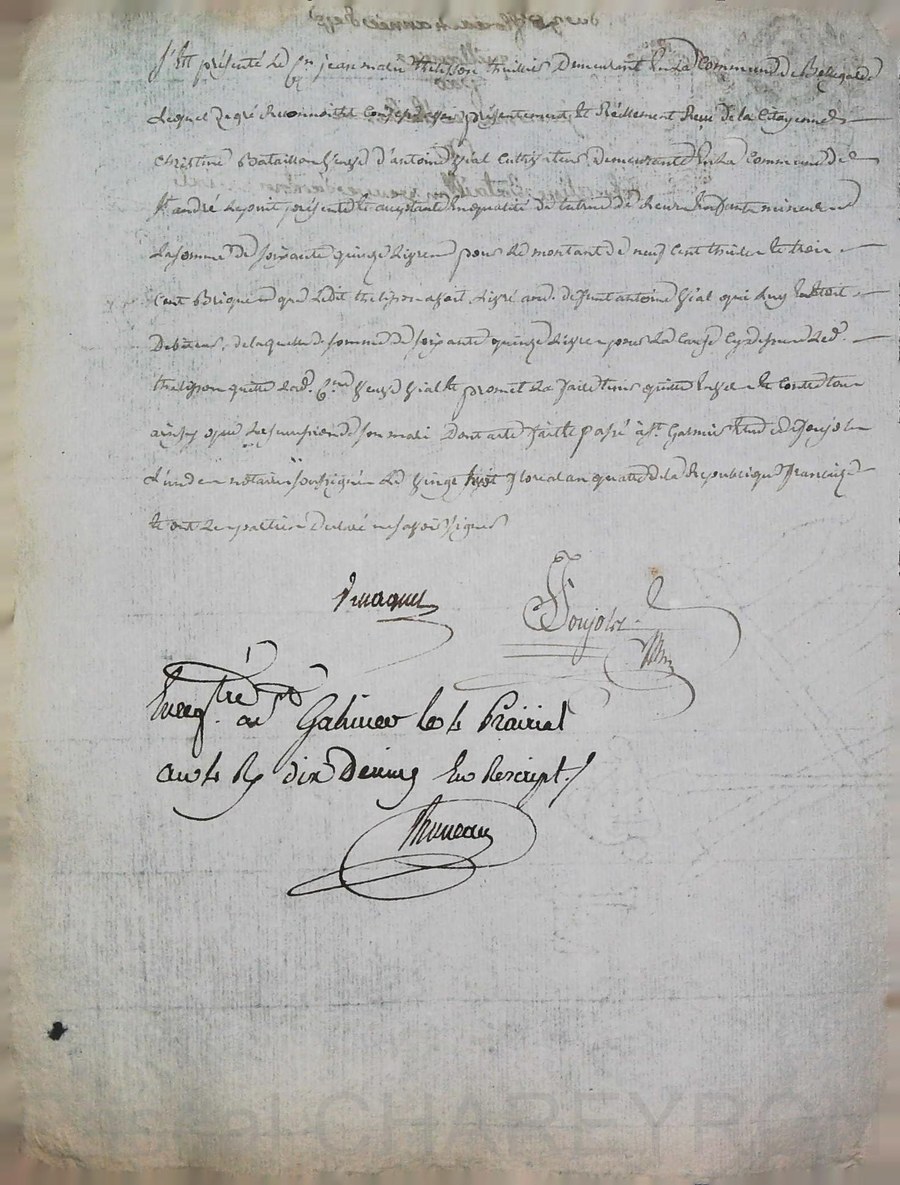 S'est présenté le Cen jean marie thelisson thuillier demeurant en la Commune de Bellegarde
Lequel de gré reconnoist Confesse avoir présentement et Réellement Reçu de la Citoyenne
Christine Bataillon Veuve d'antoine Vial Cultivateur demeurante en la Commune de
St andré Le puit présente et acceptante en qualité de tutrice de Leurs Enfants mineurs
La somme de soixante quinze Livres pour le montant de neuf cent thuiles et trois
Cent Briques que Ledit thelisson avoit Livré aud. defunt antoine Vial qui Luy En Etoit
Debiteur, de laquelle somme de soixante quinze Livres pour La Cause Cy dessus Led.
thelisson quitte Lad. Cne Veuve Vial Et promet La faire tenir quitte Envers Et Contre tous
ainsy que Les successions de son mari Dont acte fait Et passé à St. Galmier Etude de Goujolet
L'un des notaires soussignés Le vingt huit floreal an quatre de la Republique française
Et ont Les parties Declaré ne savoir signer
Goujolet
Enregtré à St Galmier le 4 Prairial
an 4 Rç dix Deniers En Rescript./.
Bruneau
CHAREYRON